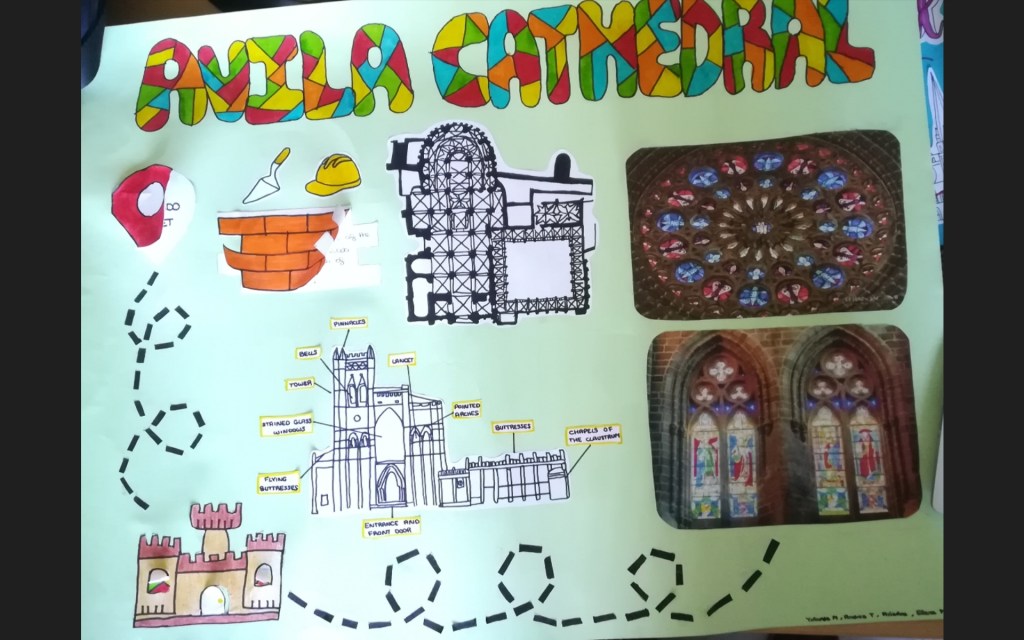 AVILA CATHEDRAL
PINNACLES
BELLS
LANCET
TOWER
POINTED
ARCHES
STAINED GLASS
WINDOWS
BUTTRESSES
CHAPELS OF
THE CLAUSTRUM
FLYING
BUTTRESSES
ENTRANCE AND
FRONT DOOR